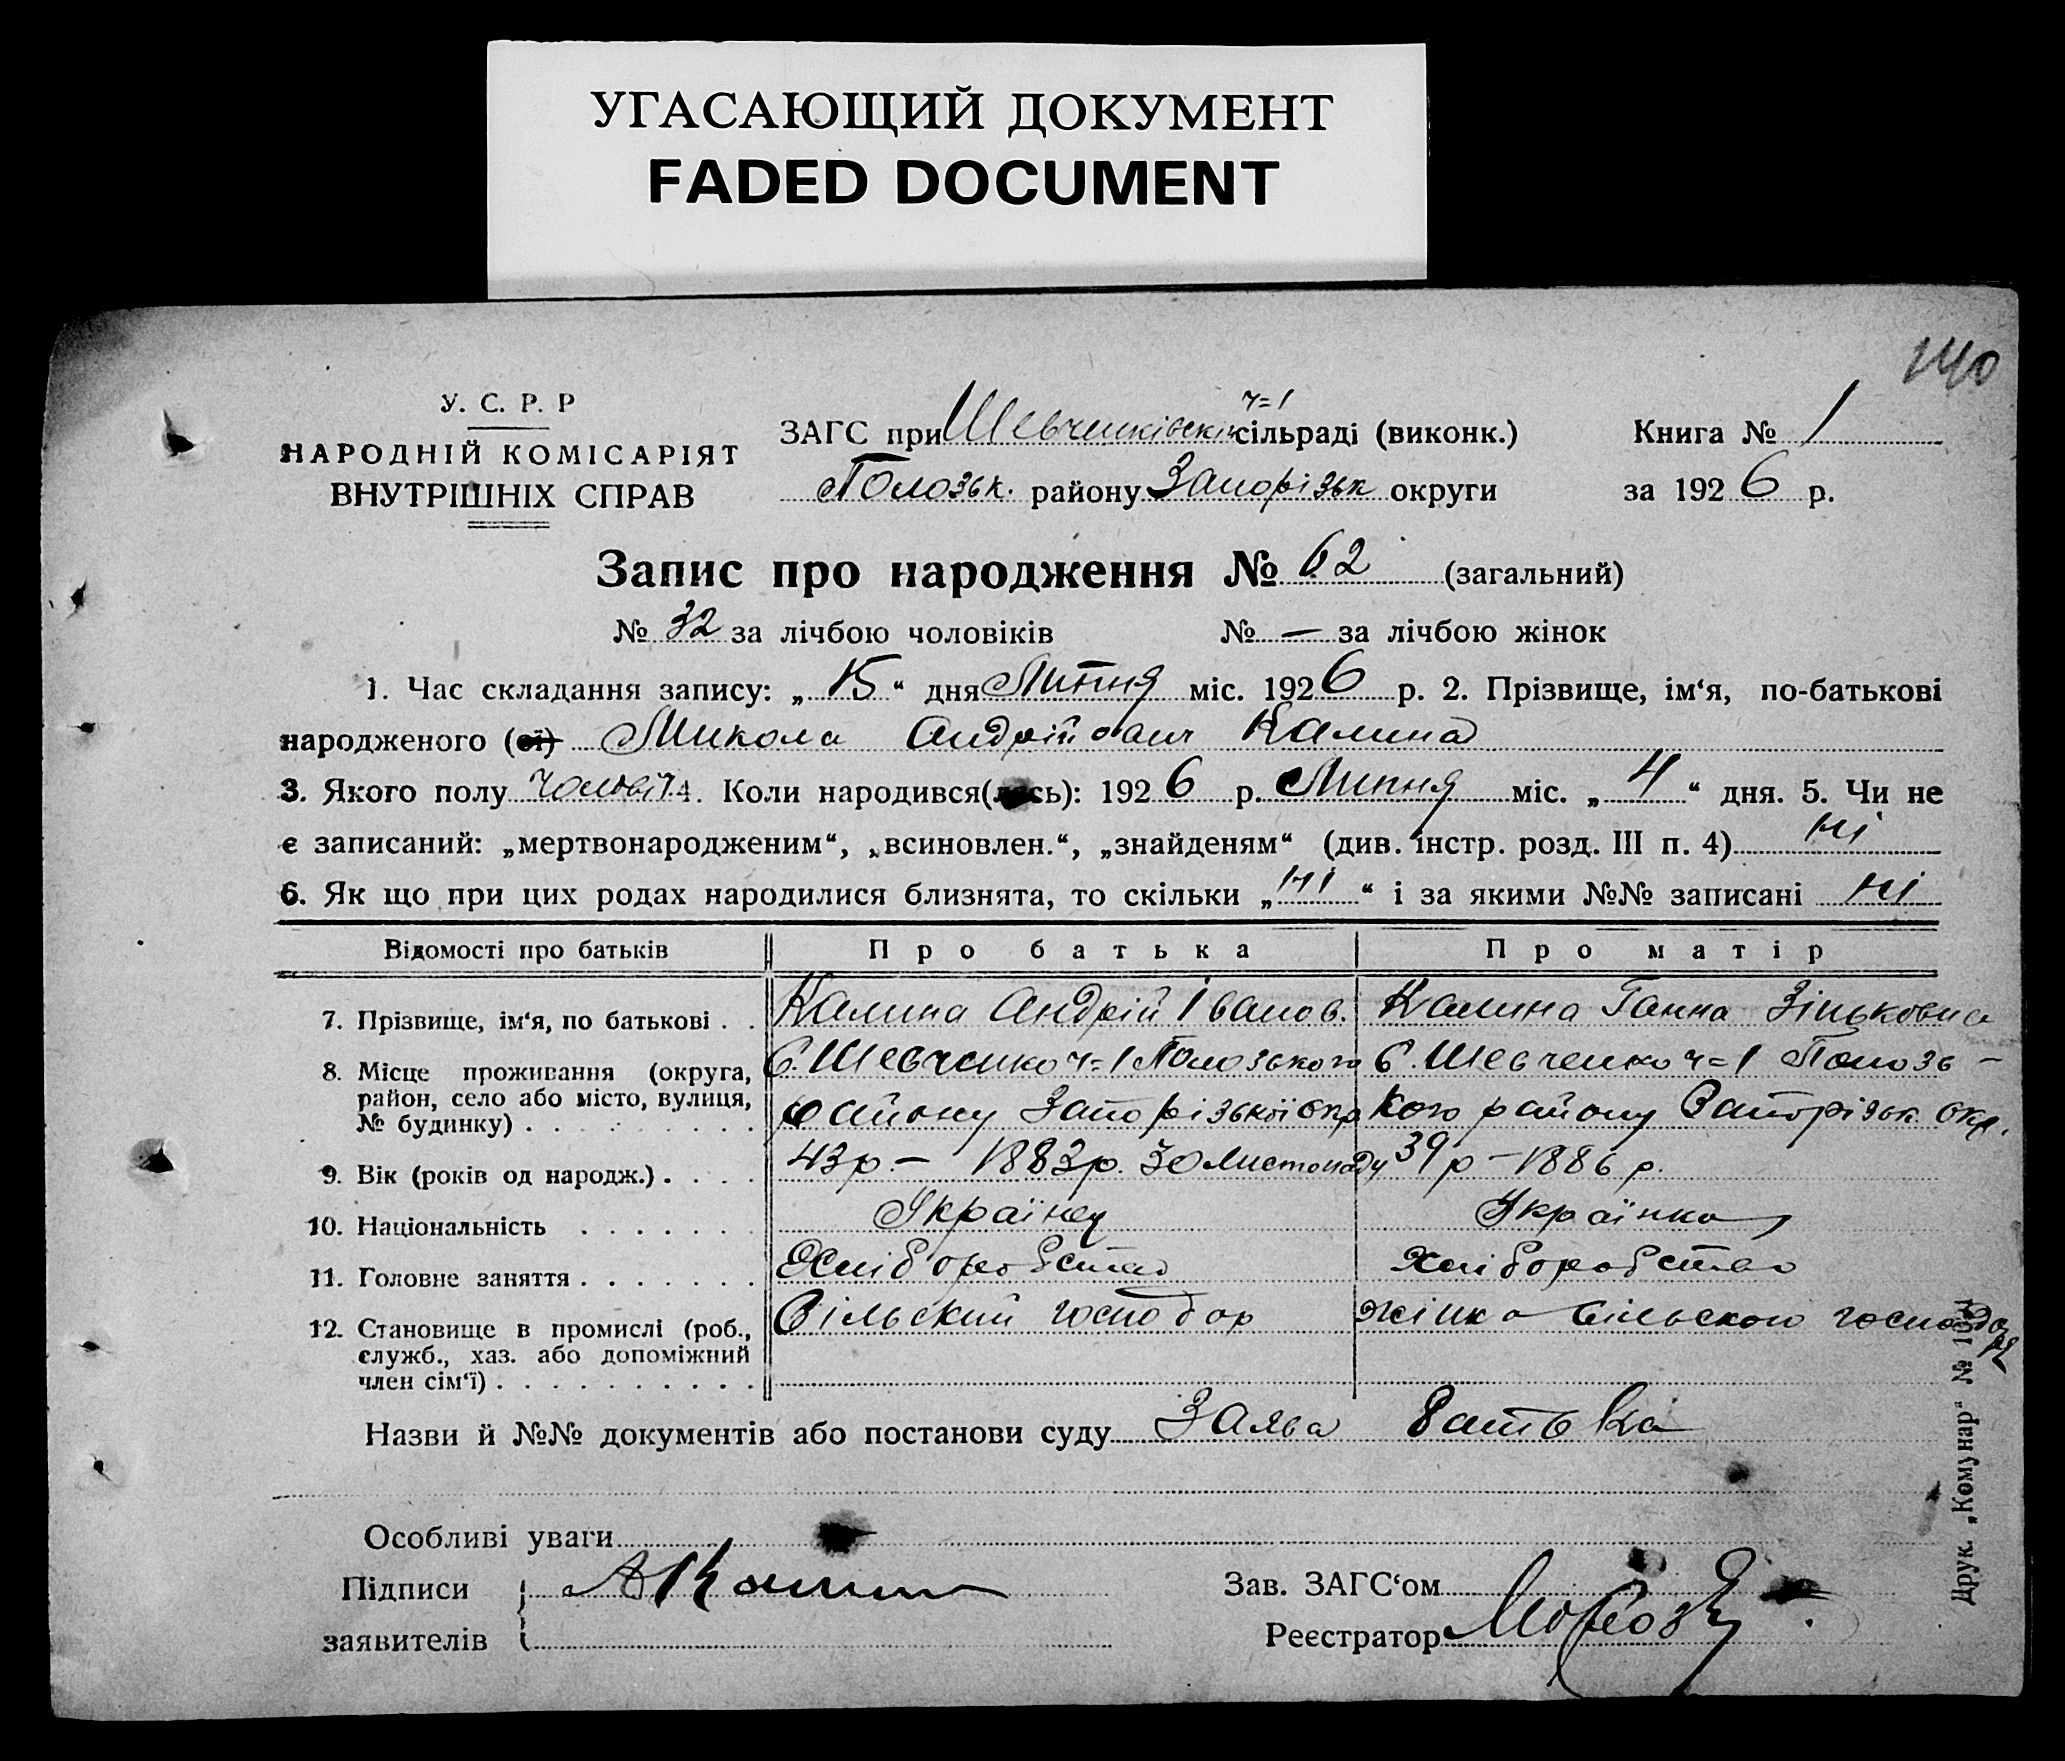 УГАСАЮЩИЙ ДОКУМЕНТ
FADED DOCUMENT
140
У. С. Р. Р
НАРОДНІЙ КОМІСАРІЯТ
ВНУТРІШНІХ СПРАВ
ч=1
ЗАГС при Шевченківскій сільраді (виконк.) Книга № 1
Полозьк. району Запорізьк округи за 1926 р.
Запис про народження № 62 (загальний)
№ 32 за лічбою чоловіків № — за лічбою жінок
1. Час складання запису: „15“ дня Липня міс. 1926 р. 2. Прізвище, ім‘я, по-батькові
народженого (ої) Микола Андрійович Калина
3. Якого полу чоловіч 4. Коли народився(лась): 1926 р. Липня міс. „4“ дня. 5. Чи не
є записаний: „мертвонародженим“, „всиновлен.“, „знайденям“ (див. інстр. розд. III п. 4) ні
6. Як що при цих родах народилися близнята, то скільки „ні“ і за якими №№ записані ні
Відомості про батьків Про батька Про матір
7. Прізвище, ім‘я, по батькові . . Калина Андрій Іванов. Калина Ганна Зіньковна
8. Місце проживання (округа, район, село або місто, вулиця, № будинку) . . . . . . . . . С. Шевченко ч=1 Полозького С. Шевченко ч=1 Полозь-
району Запорізької окр кого району Запорізьк окр.
9. Вік (років од народж.) . . . . 43 р. — 1883 р. 30 Листопаду 39 р — 1886 р.
10. Національність . . . . . . . Українец Українка
11. Головне заняття . . . . . . . Хліборобство хліборобство
12. Становище в промислі (роб., служб., хаз. або допоміжний член сім‘ї) . . . . . . . . . . Сільский господар жінка сільского господаря
Назви й №№ документів або постанови суду Заява батька
Особливі уваги
Підписи заявителів А Калина
Зав. ЗАГС‘ом
Реєстратор
Друк. „Комунар“ №